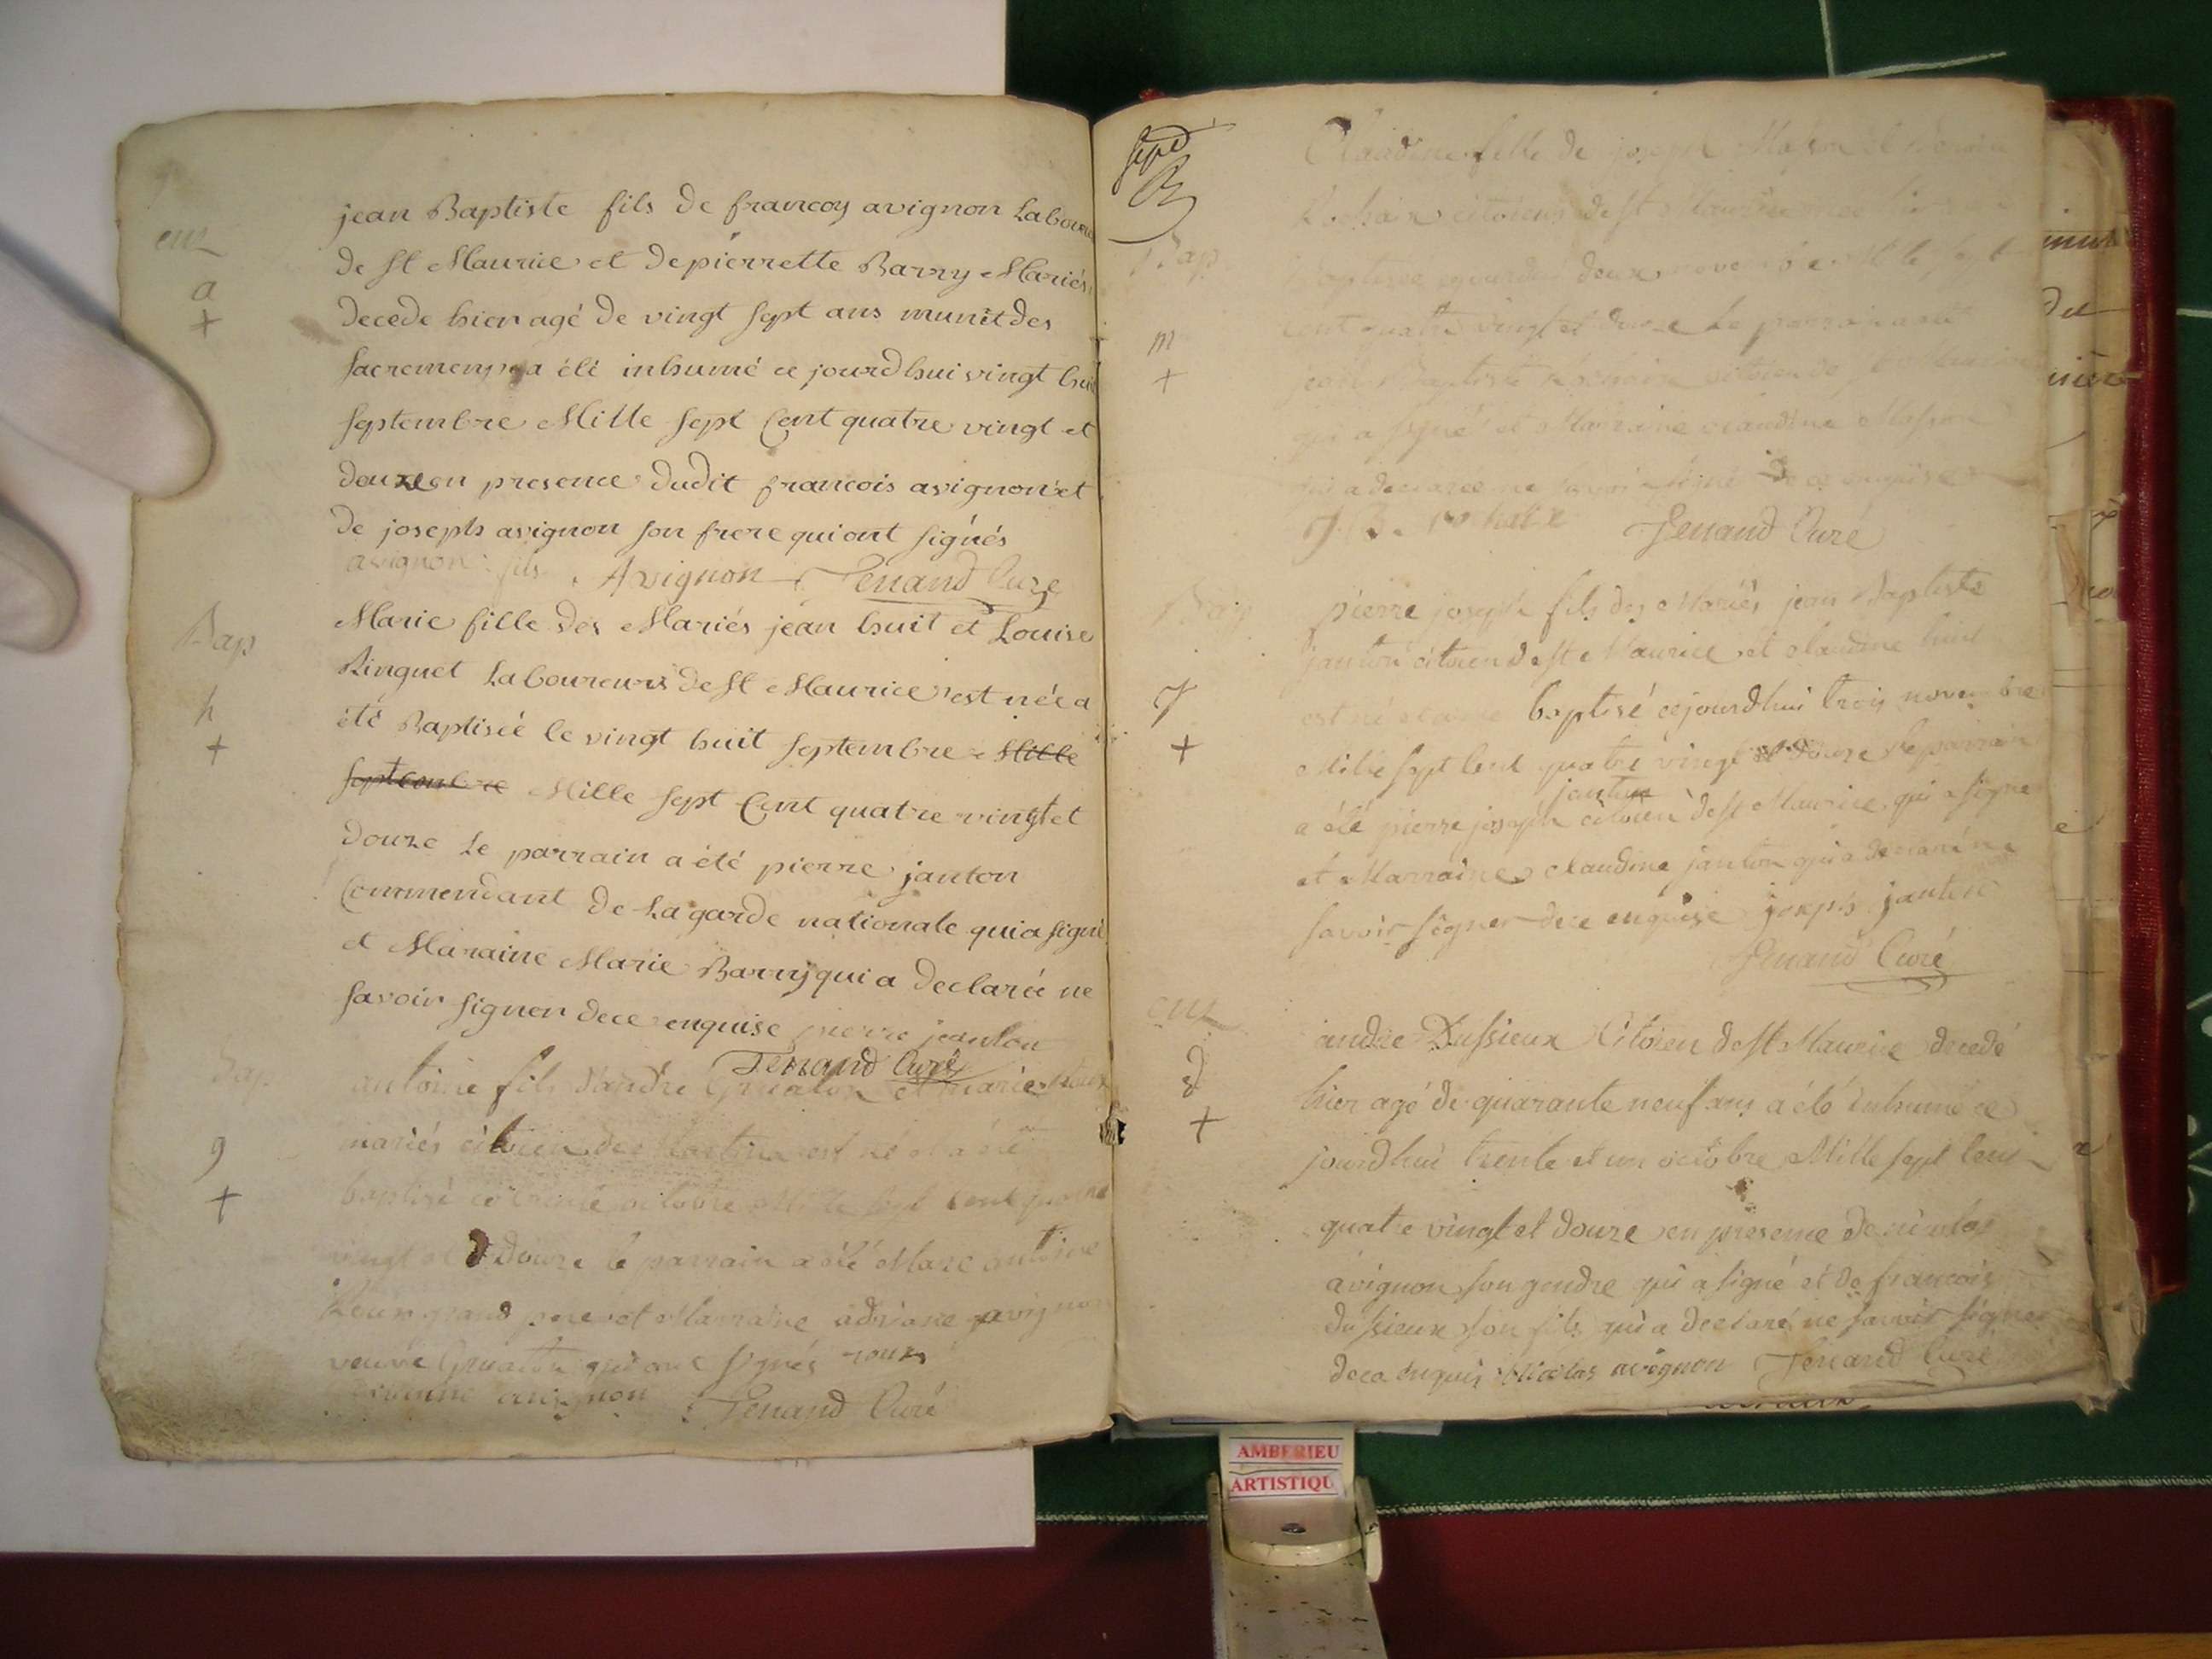 ent
a
+
jean Baptiste fils de francoy avignon Laboureu
de St Maurice et de pierrette Barry Mariés
decede hier agé de vingt sept ans munit des
sacremens a été inhumé ce jourdhui vingt huit
septembre Mille sept Cent quatre vingt et
douze en presence dudit francois avignon et
de joseph avignon son frere qui ont signés
avignon fils Avignon Tenand Curé
Bap
h
+
Marie fille des Mariés jean huit et Louise
Ringuet Laboureurs de St Maurice est née a
été Baptisée le vingt huit septembre Mille
septembre Mille sept Cent quatre vingt et
douze Le parrain a été pierre janton
Commendant de La garde nationale qui a signé
et Maraine Marie Barry qui a declarée ne
savoir signer de ce enquise pierre janton
Tenand Curé
Bap
g
+
antoine fils d'andre et marie
mariés citoien de est né a été
baptisé octobre Mille sept cent quatre
vingt et douze le parrain a été Marc antoine
grand pere et Marraine adriane avignon
veuve qui ont signés roux
avignon Tenand Curé
sept
Bap
m
+
Claudine fille de joseph Masson et
citoiens de St Maurice
Baptisée deux novembre Mille sept
cent quatre vingt et douze Le parrain a été
jean Baptiste citoien de St Maurice
qui a signé et Marraine claudine Masson
qui a declarée ne savoir signer de ce enquise
J. B. Tenand Curé
Bap
J
+
pierre joseph fils des Mariés jean Baptiste
janton citoien de St Maurice et claudine huit
est né et a été baptisé cejourdhui trois novembre
Mille sept Cent quatre vingt et douze Le parrain
janton
a été pierre joseph citoien de St Maurice qui a signé
et Marraine claudine janton qui a declaré ne
savoir signer de ce enquise joseph janton
Tenand Curé
ent
d
+
andre Dussieux Citoien de St Maurice decedé
hier agé de quarante neuf ans a été Inhumé ce
jourdhui trente et un octobre Mille sept Cent
quatre vingt et douze en presence de nicolas
avignon son gendre qui a signé et de francois
dussieux son fils qui a declaré ne savoir signer
de ce enquis Nicolas avignon Tenand Curé
AMBERIEU
ARTISTIQU